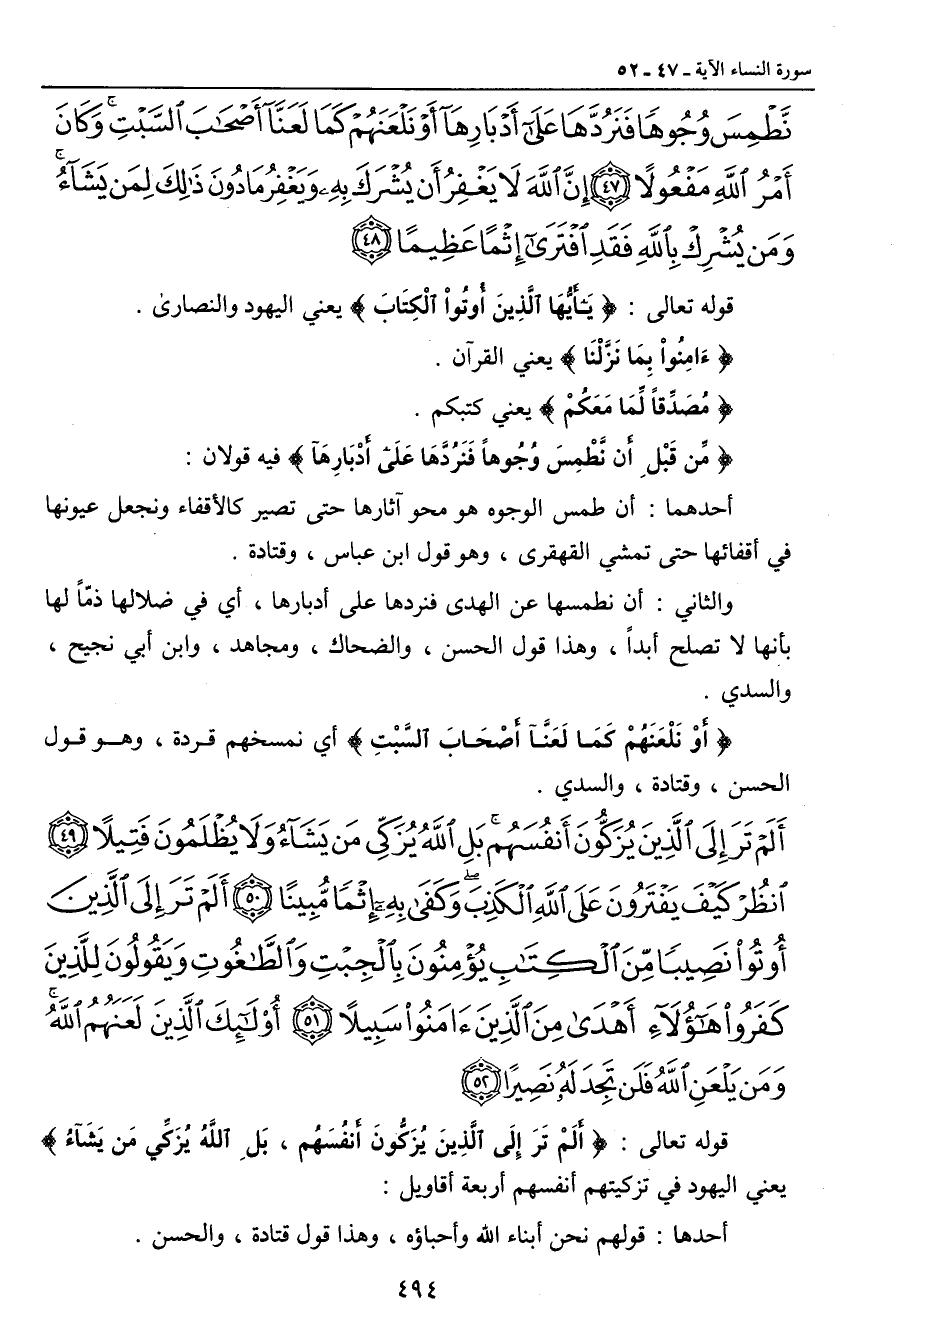 سورة النساء الآية ـ ٤٧ ـ ٥٢
نَّطْمِسَ وُجُوهًا فَنَرُدَّهَا عَلَىٰٓ أَدْبَارِهَآ أَوْ نَلْعَنَهُمْ كَمَا لَعَنَّآ أَصْحَٰبَ ٱلسَّبْتِ ۚ وَكَانَ
أَمْرُ ٱللَّهِ مَفْعُولًا ٤٧ إِنَّ ٱللَّهَ لَا يَغْفِرُ أَن يُشْرَكَ بِهِۦ وَيَغْفِرُ مَا دُونَ ذَٰلِكَ لِمَن يَشَآءُ ۚ
وَمَن يُشْرِكْ بِٱللَّهِ فَقَدِ ٱفْتَرَىٰٓ إِثْمًا عَظِيمًا ٤٨
قوله تعالى : ﴿ يَـٰٓأَيُّهَا ٱلَّذِينَ أُوتُواْ ٱلْكِتَابَ ﴾ يعني اليهود والنصارىٰ .
﴿ ءَامِنُواْ بِمَا نَزَّلْنَا ﴾ يعني القرآن .
﴿ مُصَدِّقاً لِّمَا مَعَكُمْ ﴾ يعني كتبكم .
﴿ مِّن قَبْلِ أَن نَّطْمِسَ وُجُوهاً فَنَرُدَّهَا عَلَىٰٓ أَدْبَارِهَآ ﴾ فيه قولان :
أحدهما : أن طمس الوجوه هو محو آثارها حتى تصير كالأقفاء ونجعل عيونها
في أقفائها حتى تمشي القهقرى ، وهو قول ابن عباس ، وقتادة .
والثاني : أن نطمسها عن الهدى فنردها على أدبارها ، أي في ضلالها ذمّاً لها
بأنها لا تصلح أبداً ، وهذا قول الحسن ، والضحاك ، ومجاهد ، وابن أبي نجيح ،
والسدي .
﴿ أَوْ نَلْعَنَهُمْ كَمَـا لَعَنَّـآ أَصْحَـابَ ٱلسَّبْتِ ﴾ أي نمسخهم قـردة ، وهـو قـول
الحسن ، وقتادة ، والسدي .
أَلَمْ تَرَ إِلَى ٱلَّذِينَ يُزَكُّونَ أَنفُسَهُم ۚ بَلِ ٱللَّهُ يُزَكِّى مَن يَشَآءُ وَلَا يُظْلَمُونَ فَتِيلًا ٤٩
ٱنظُرْ كَيْفَ يَفْتَرُونَ عَلَى ٱللَّهِ ٱلْكَذِبَ ۖ وَكَفَىٰ بِهِۦٓ إِثْمًا مُّبِينًا ٥٠ أَلَمْ تَرَ إِلَى ٱلَّذِينَ
أُوتُواْ نَصِيبًا مِّنَ ٱلْكِتَٰبِ يُؤْمِنُونَ بِٱلْجِبْتِ وَٱلطَّٰغُوتِ وَيَقُولُونَ لِلَّذِينَ
كَفَرُواْ هَٰٓؤُلَآءِ أَهْدَىٰ مِنَ ٱلَّذِينَ ءَامَنُواْ سَبِيلًا ٥١ أُوْلَٰٓئِكَ ٱلَّذِينَ لَعَنَهُمُ ٱللَّهُ ۖ
وَمَن يَلْعَنِ ٱللَّهُ فَلَن تَجِدَ لَهُۥ نَصِيرًا ٥٢
قوله تعالى : ﴿ أَلَمْ تَرَ إِلَى ٱلَّذِينَ يُزَكُّونَ أَنفُسَهُم ، بَلِ ٱللَّهُ يُزَكِّي مَن يَشَآءُ ﴾
يعني اليهود في تزكيتهم أنفسهم أربعة أقاويل :
أحدها : قولهم نحن أبناء الله وأحباؤه ، وهذا قول قتادة ، والحسن .
٤٩٤